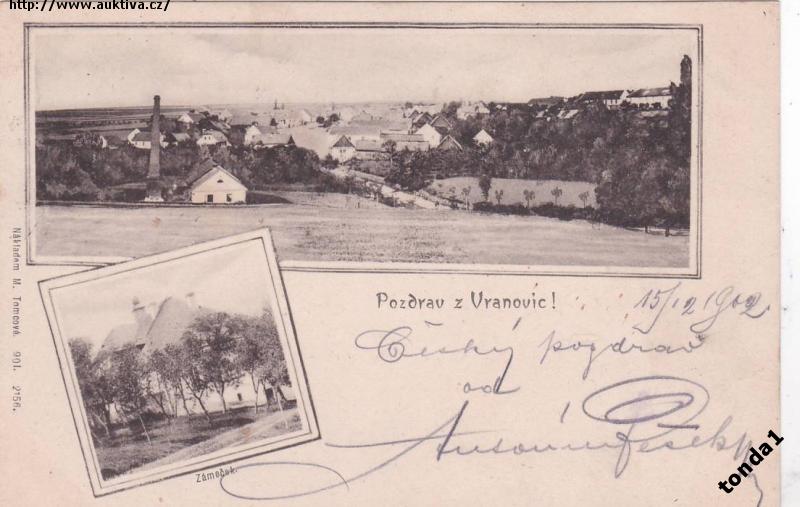 http://www.auktiva.cz/
Pozdrav z Vranovic!
15/12 1902
Český pozdrav
od
Antonín
Zámeček.
Nákladem M. Tomcová. 901. 2156.
tonda1